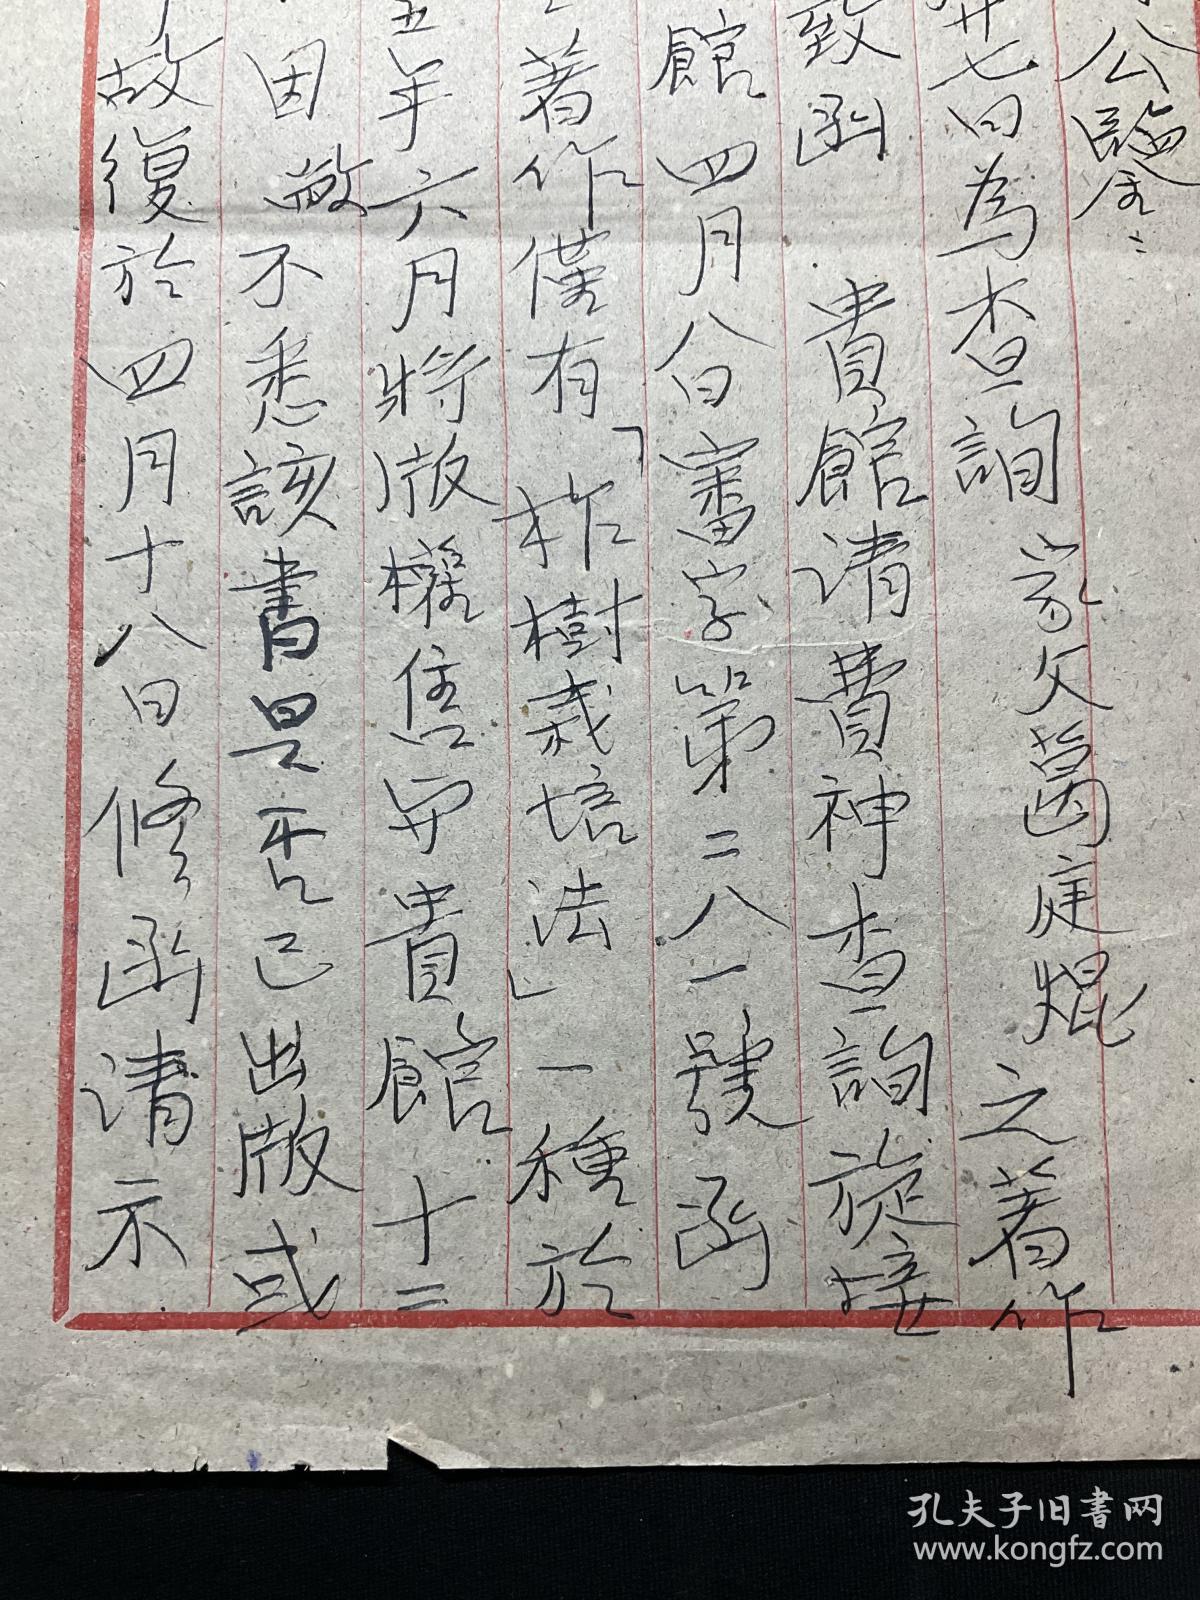 公鑒：
廿七日為查詢 家父茵庭焜之著作
致函 貴館請費神查詢旋接
館四月八日審字第二八一號函
著作僅有「柞樹栽培法」一種於
五年六月將版權售与貴館十二
因敝不悉該書是否已出版或
故復於四月十八日修函请示
孔夫子旧書网
www.kongfz.com